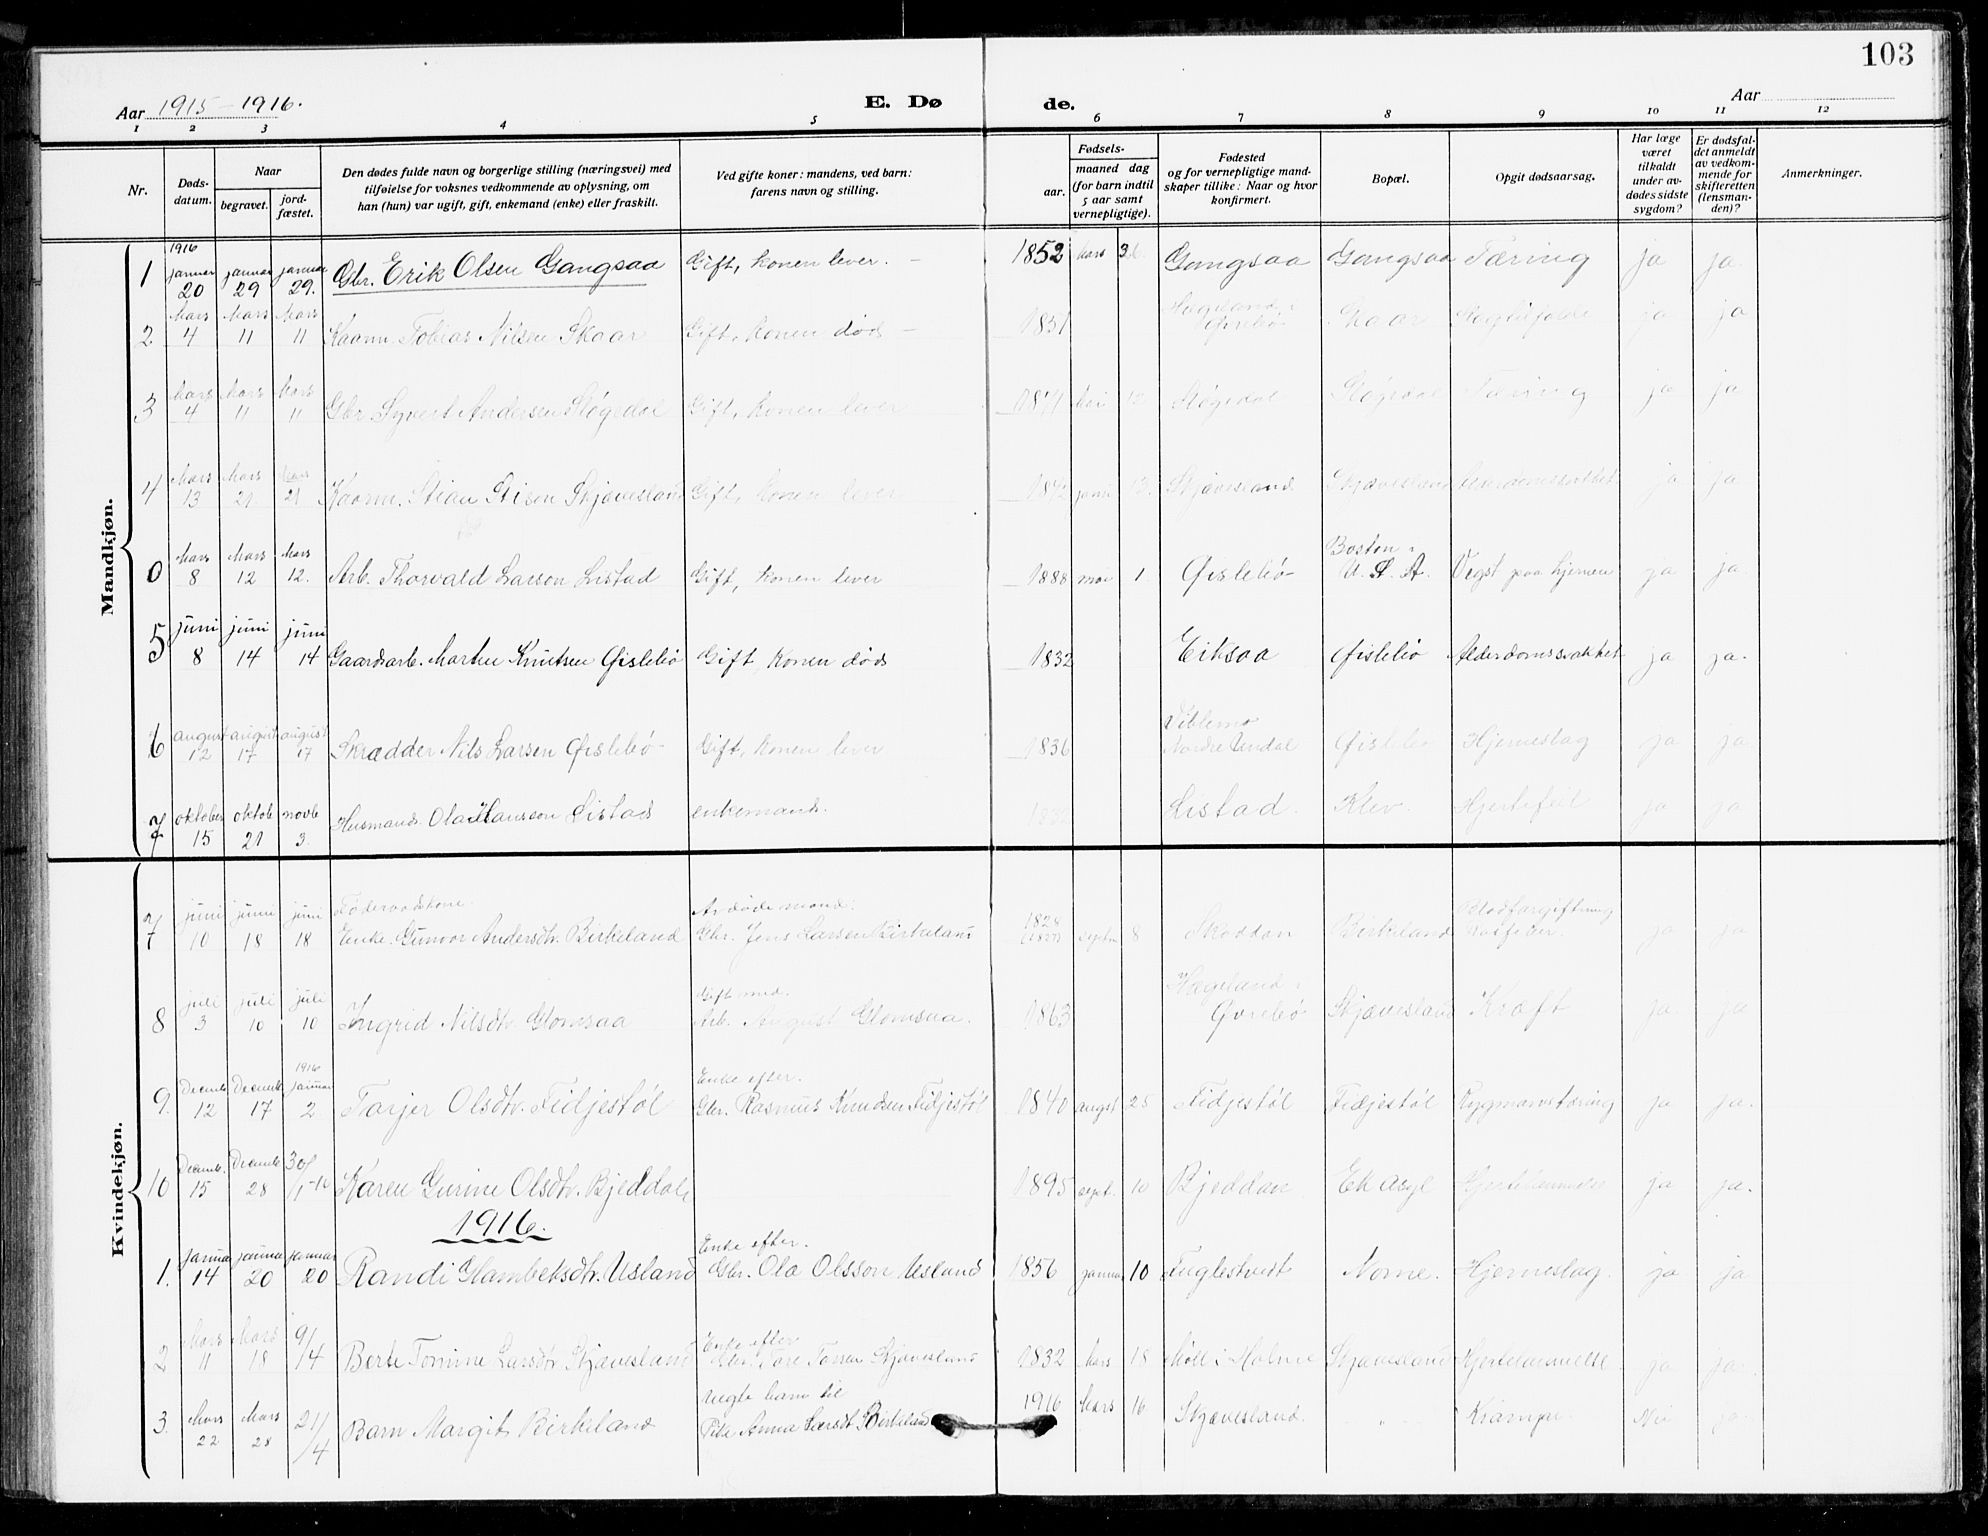 103
Aar 1915-1916.
E. Dø de.
Aar
1 2 3 4 5 6 7 8 9 10 11 12
Nr.
Døds-datum.
Naar
begravet.
jord-fæstet.
Den dødes fulde navn og borgerlige stilling (næringsvei) med tilføielse for voksnes vedkommende av oplysning, om han (hun) var ugift, gift, enkemand (enke) eller fraskilt.
Ved gifte koner: mandens, ved barn: farens navn og stilling.
Fødsels-
aar.
maaned dag (for barn indtil 5 aar samt vernepligtige).
Fødested og for vernepligtige mandskaper tillike: Naar og hvor konfirmert.
Bopæl.
Opgit dødsaarsag.
Har læge været tilkaldt under avdødes sidste sygdom?
Er dødsfaldet anmeldt av vedkommende for skifteretten (lensmanden)?
Anmerkninger.
Mandkjøn.
1 1916 januar 20 januar 29 januar 29. Gbr. Erik Olsen Gangsaa Gift, konen lever. 1852 Mars Gangsaa Gangsaa Tæring ja ja.
2 Mars 4 Mars 11 Mars 11 Kaarm. Tobias Nilsen Skaar Gift, konen død 1831 Hægeland i Øvrebø Skaar ja ja
3 Mars 4 Mars 11 Mars 11 Gbr Syvert Andersen Støgedal Gift, konen lever 1871 12 Støgedal Støgedal Tæring ja ja
4 Mars 13 Mars 21 Mars 21 Kaarm. Stian Stisen Skjævesland Gift, konen lever 1842 13. Skjævesland Skjævesland Alderdomssvakhet ja ja
0 Mars 8 Mars 12 Mars 12. Arb. Thorvald Larson Listad Gift, konen lever 1888 mai 1 Øislebø Boston i U. S. A. Vegst paa hjernen ja ja.
5 juni 8 juni 14 juni 14 Gaardarb. Marten Knutsen Øislebø Gift, konen død 1832 Eiksaa Øislebø Alderdomssvakhet ja ja.
6 august 12 august 17 august 17 Skrædder Nils Larsen Øislebø Gift, konen lever 1836 Viblemo Nordre Undal Øislebø Hjerneslag ja ja
7 oktober 15 oktob 21 novb 3. Husmand Ola Hansson Listad enkemand. Listad. Klev. Hjertefeil ja ja
Kvindekjøn.
7 juni 10 juni 18 juni 18 Føderaadskone. Enke. Gunvor Andersdtr. Birkeland Avdøde mand: Gbr. Jens Larsen Birkeland 1828 (1827) septm 8 Skoddan Birkeland Blodforgiftning ja ja
8 juli 3 juli 10 juli 10 Ingrid Nilsdtr. Glomsaa Gift med. Arb. August Glomsaa. 1863 Hægeland i Øvrebø Skjævesland Kræft ja. ja
9. Decemb 12 Decemb 17 1916 januar 2 Tarjer Olsdtr. Fidjestøl Enke efter. Gbr. Rasmus Knudsen Fidjestøl 1840 augst 25 Fidjestøl Fidjestøl Rygmarvstæring ja ja.
10 Decemb. 15 Decemb 28 30/1-16 Karen Gurine Olsdtr. Bjeddal 1895 sept. 10 Bjeddan Ek asyl Hjertelammelse ja ja.
1916.
1. Januar 14 januar 20 januar 20 Randi Glambeksdtr. Usland Enke efter. Gbr. Ola Olsson Usland 1856 januar 10 Fuglestvedt Nome. Hjerneslag. ja ja
2 Mars 11 Mars 18 9/14 Berte Tomine Larsdtr. Skjævesland Enke efter Gbr. Tore Torsen Skjævesland 1832 Mars 18 Møll i Holme Skjævesland Hjertelammelse ja ja.
3. Mars 22 Mars 28 21/4 Barn Margit Birkeland Uegte barn til Pike Anna Larsdt Birkeland 1916 Mars 16 Skjævesland. " Krampe Nei ja